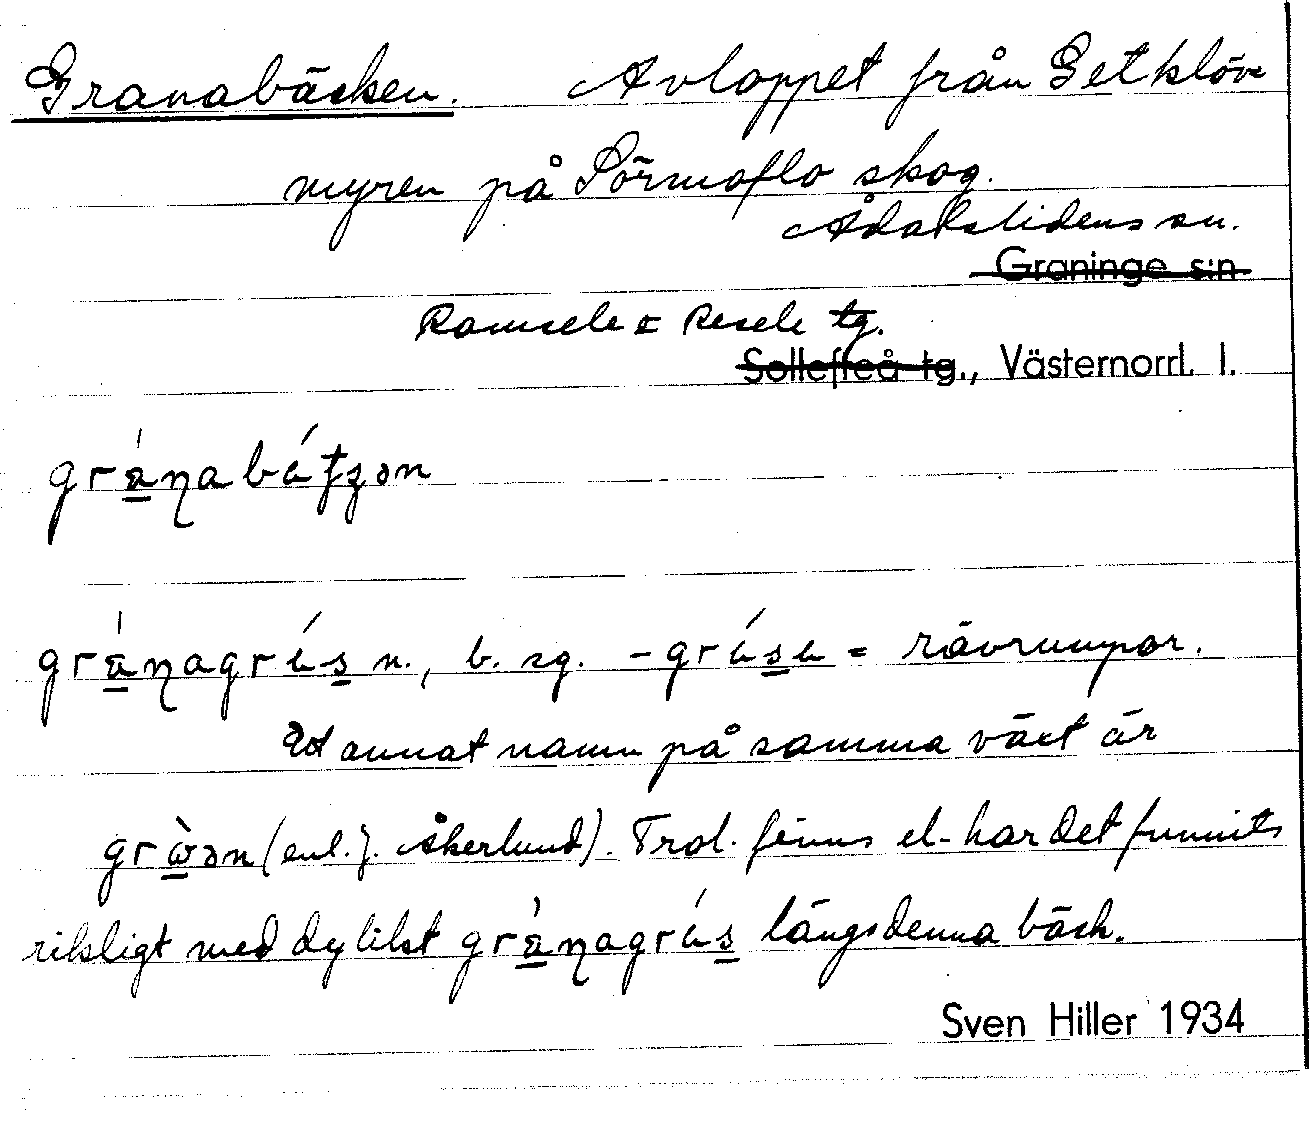 Granabäcken. Avloppet från Getklöv
myren på Sörmoflo skog.
Ådalslidens sn.
Graninge s:n
Ramsele & Resele tg.
Sollefteå tg., Västernorrl. l.
grànabátʒən
grànagrás n., b. sg. -gráse = rävrumpor.
Ett annat namn på samma växt är
gràən (enl. J. Åkerlund). Trol. finns el. har det funnits
rikligt med dylikt grànagrás längs denna bäck.
Sven Hiller 1934